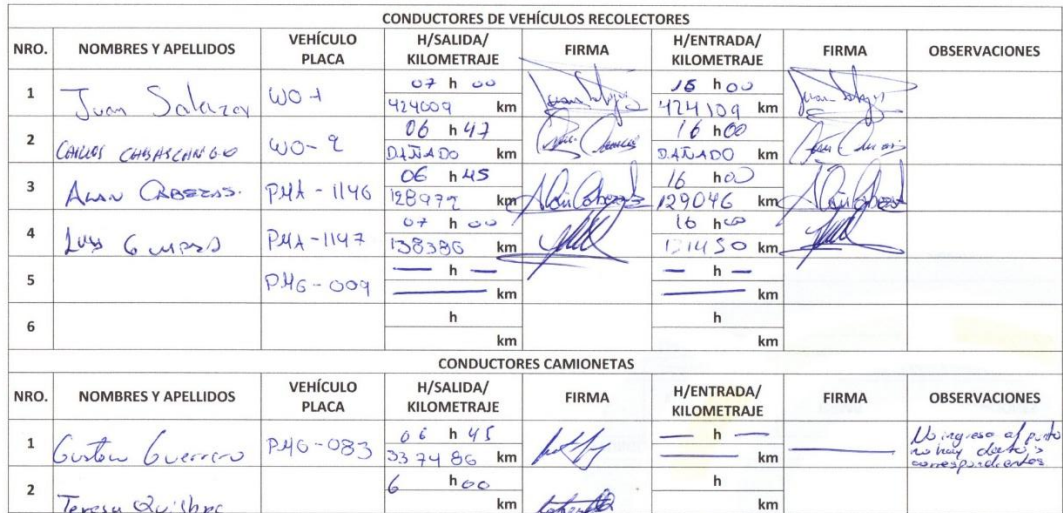 CONDUCTORES DE VEHÍCULOS RECOLECTORES
NRO. NOMBRES Y APELLIDOS VEHÍCULO PLACA H/SALIDA/ KILOMETRAJE FIRMA H/ENTRADA/ KILOMETRAJE FIRMA OBSERVACIONES
1 Juan Salazar WO-1 07 h 00 16 h 00
424009 km 424109 km
2 WO-2 06 h 47 16 h 00
DAÑADO km DAÑADO km
3 ALAN CABEZAS. PMA-1146 06 h 45 16 h 00
128977 km 129046 km
4 Luis PMA-1147 07 h 00 16 h 00
138386 km km
5 PMG-009 — h — — h —
— km — km
6 h h
km km
CONDUCTORES CAMIONETAS
NRO. NOMBRES Y APELLIDOS VEHÍCULO PLACA H/SALIDA/ KILOMETRAJE FIRMA H/ENTRADA/ KILOMETRAJE FIRMA OBSERVACIONES
1 Gustavo Guerrero PMG-083 06 h 45 — h — — No ingreso al patio
337486 km — km no hay datos
correspondientes
2 Teresa Quishpe 6 h 00 h
km km